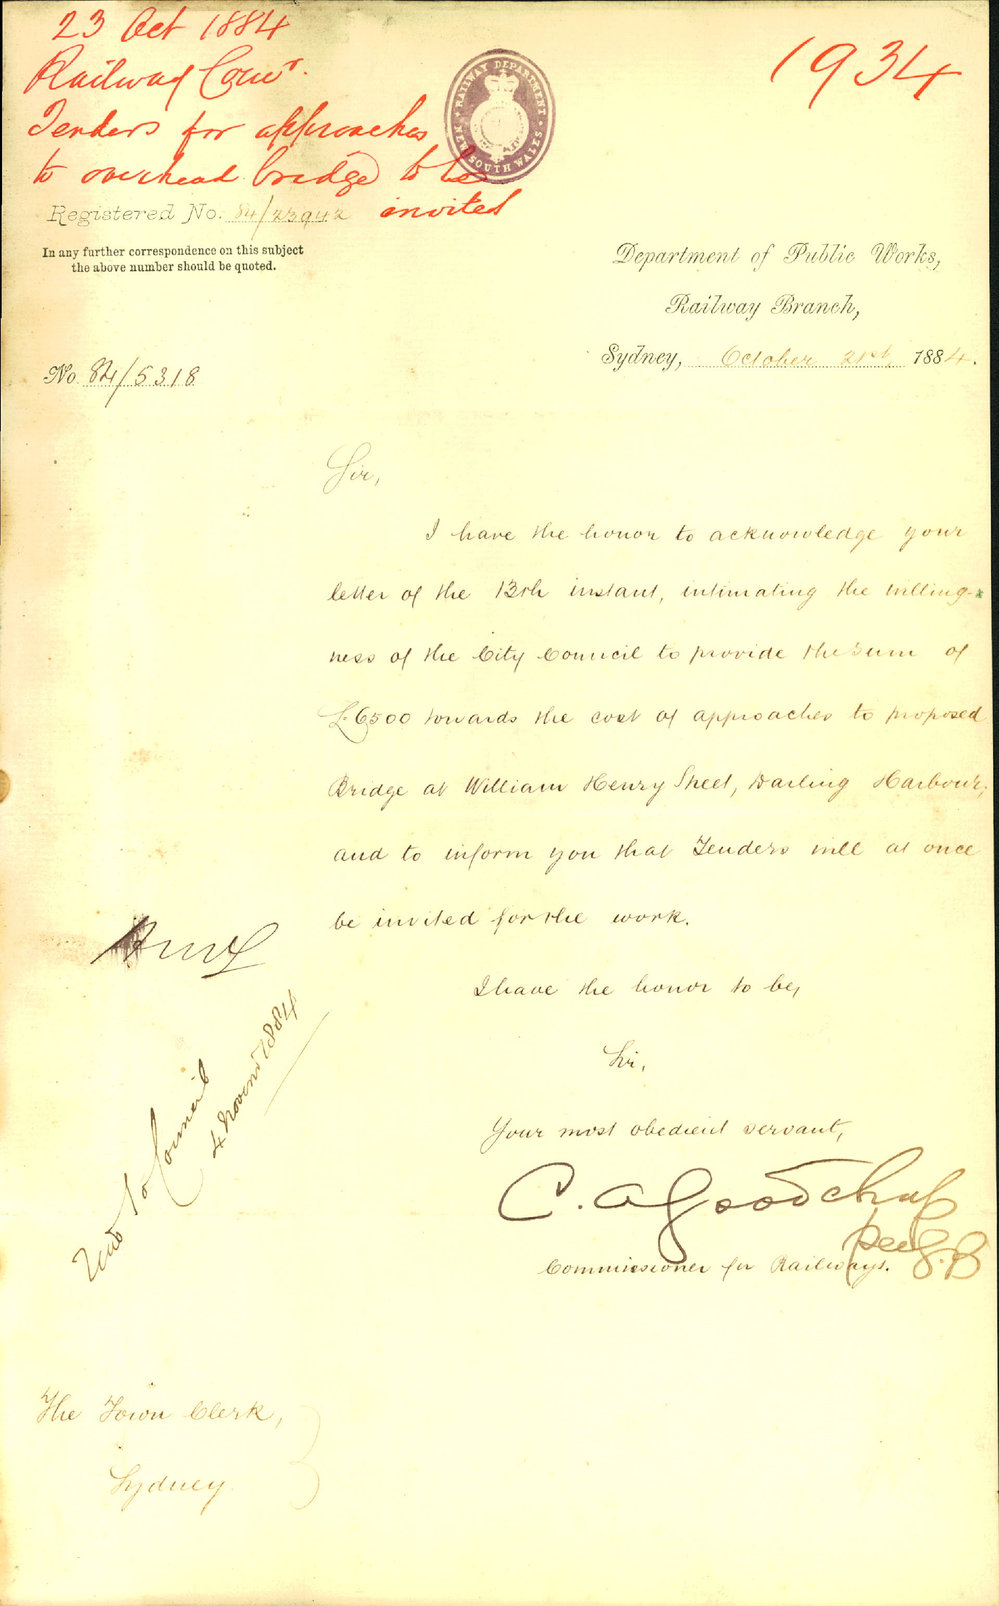 23 Oct 1884
Railway Comr.
Tenders for approaches
to overhead bridge to be
invited
1934
RAILWAY DEPARTMENT
NEW SOUTH WALES
Registered No. 84/23942
In any further correspondence on this subject
the above number should be quoted.
Department of Public Works,
Railway Branch,
Sydney, October 21st, 1884.
No. 84/5318
Sir,
I have the honor to acknowledge your
letter of the 13th instant, intimating the willing-
ness of the City Council to provide the sum of
£6500 towards the cost of approaches to proposed
Bridge at William Henry Street, Darling Harbour,
and to inform you that Tenders will at once
be invited for the work.
I have the honor to be,
Sir,
Your most obedient servant,
C. A Goodchap
per G.B
Commissioner for Railways.
to Council
4 Novemr 1884
The Town Clerk,
Sydney